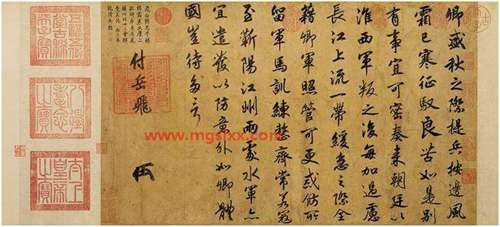 卿盛秋之際提兵按邊風
霜已寒征馭良苦如是別
有事宜可密奏來朝廷以
淮西軍叛之後每加過慮
長江上流一帶緩急之際全
藉卿軍照管可更戒飭所
留軍馬訓練整齊常若寇
至蘄陽江州兩處水軍亦
宜遣發以防意外如卿體
國豈待多言
付岳飛
八徵耄念之寶
太上皇帝之寶
www.mgslxx.com